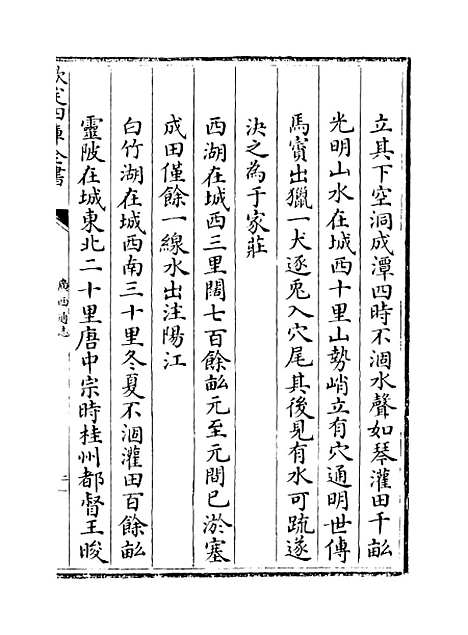 立其下空洞成潭四時不涸水聲如琴灌田千畝
光明山水在城西十里山勢峭立有穴通明世傳
馬賓出獵一犬逐兎入穴尾其後見有水可疏遂
決之為于家莊
西湖在城西三里闊七百餘畝元至元間已淤塞
成田僅餘一線水出注陽江
白竹湖在城西南三十里冬夏不涸灌田百餘畝
靈陂在城東北二十里唐中宗時桂州都督王晙
欽定四庫全書
廣西通志